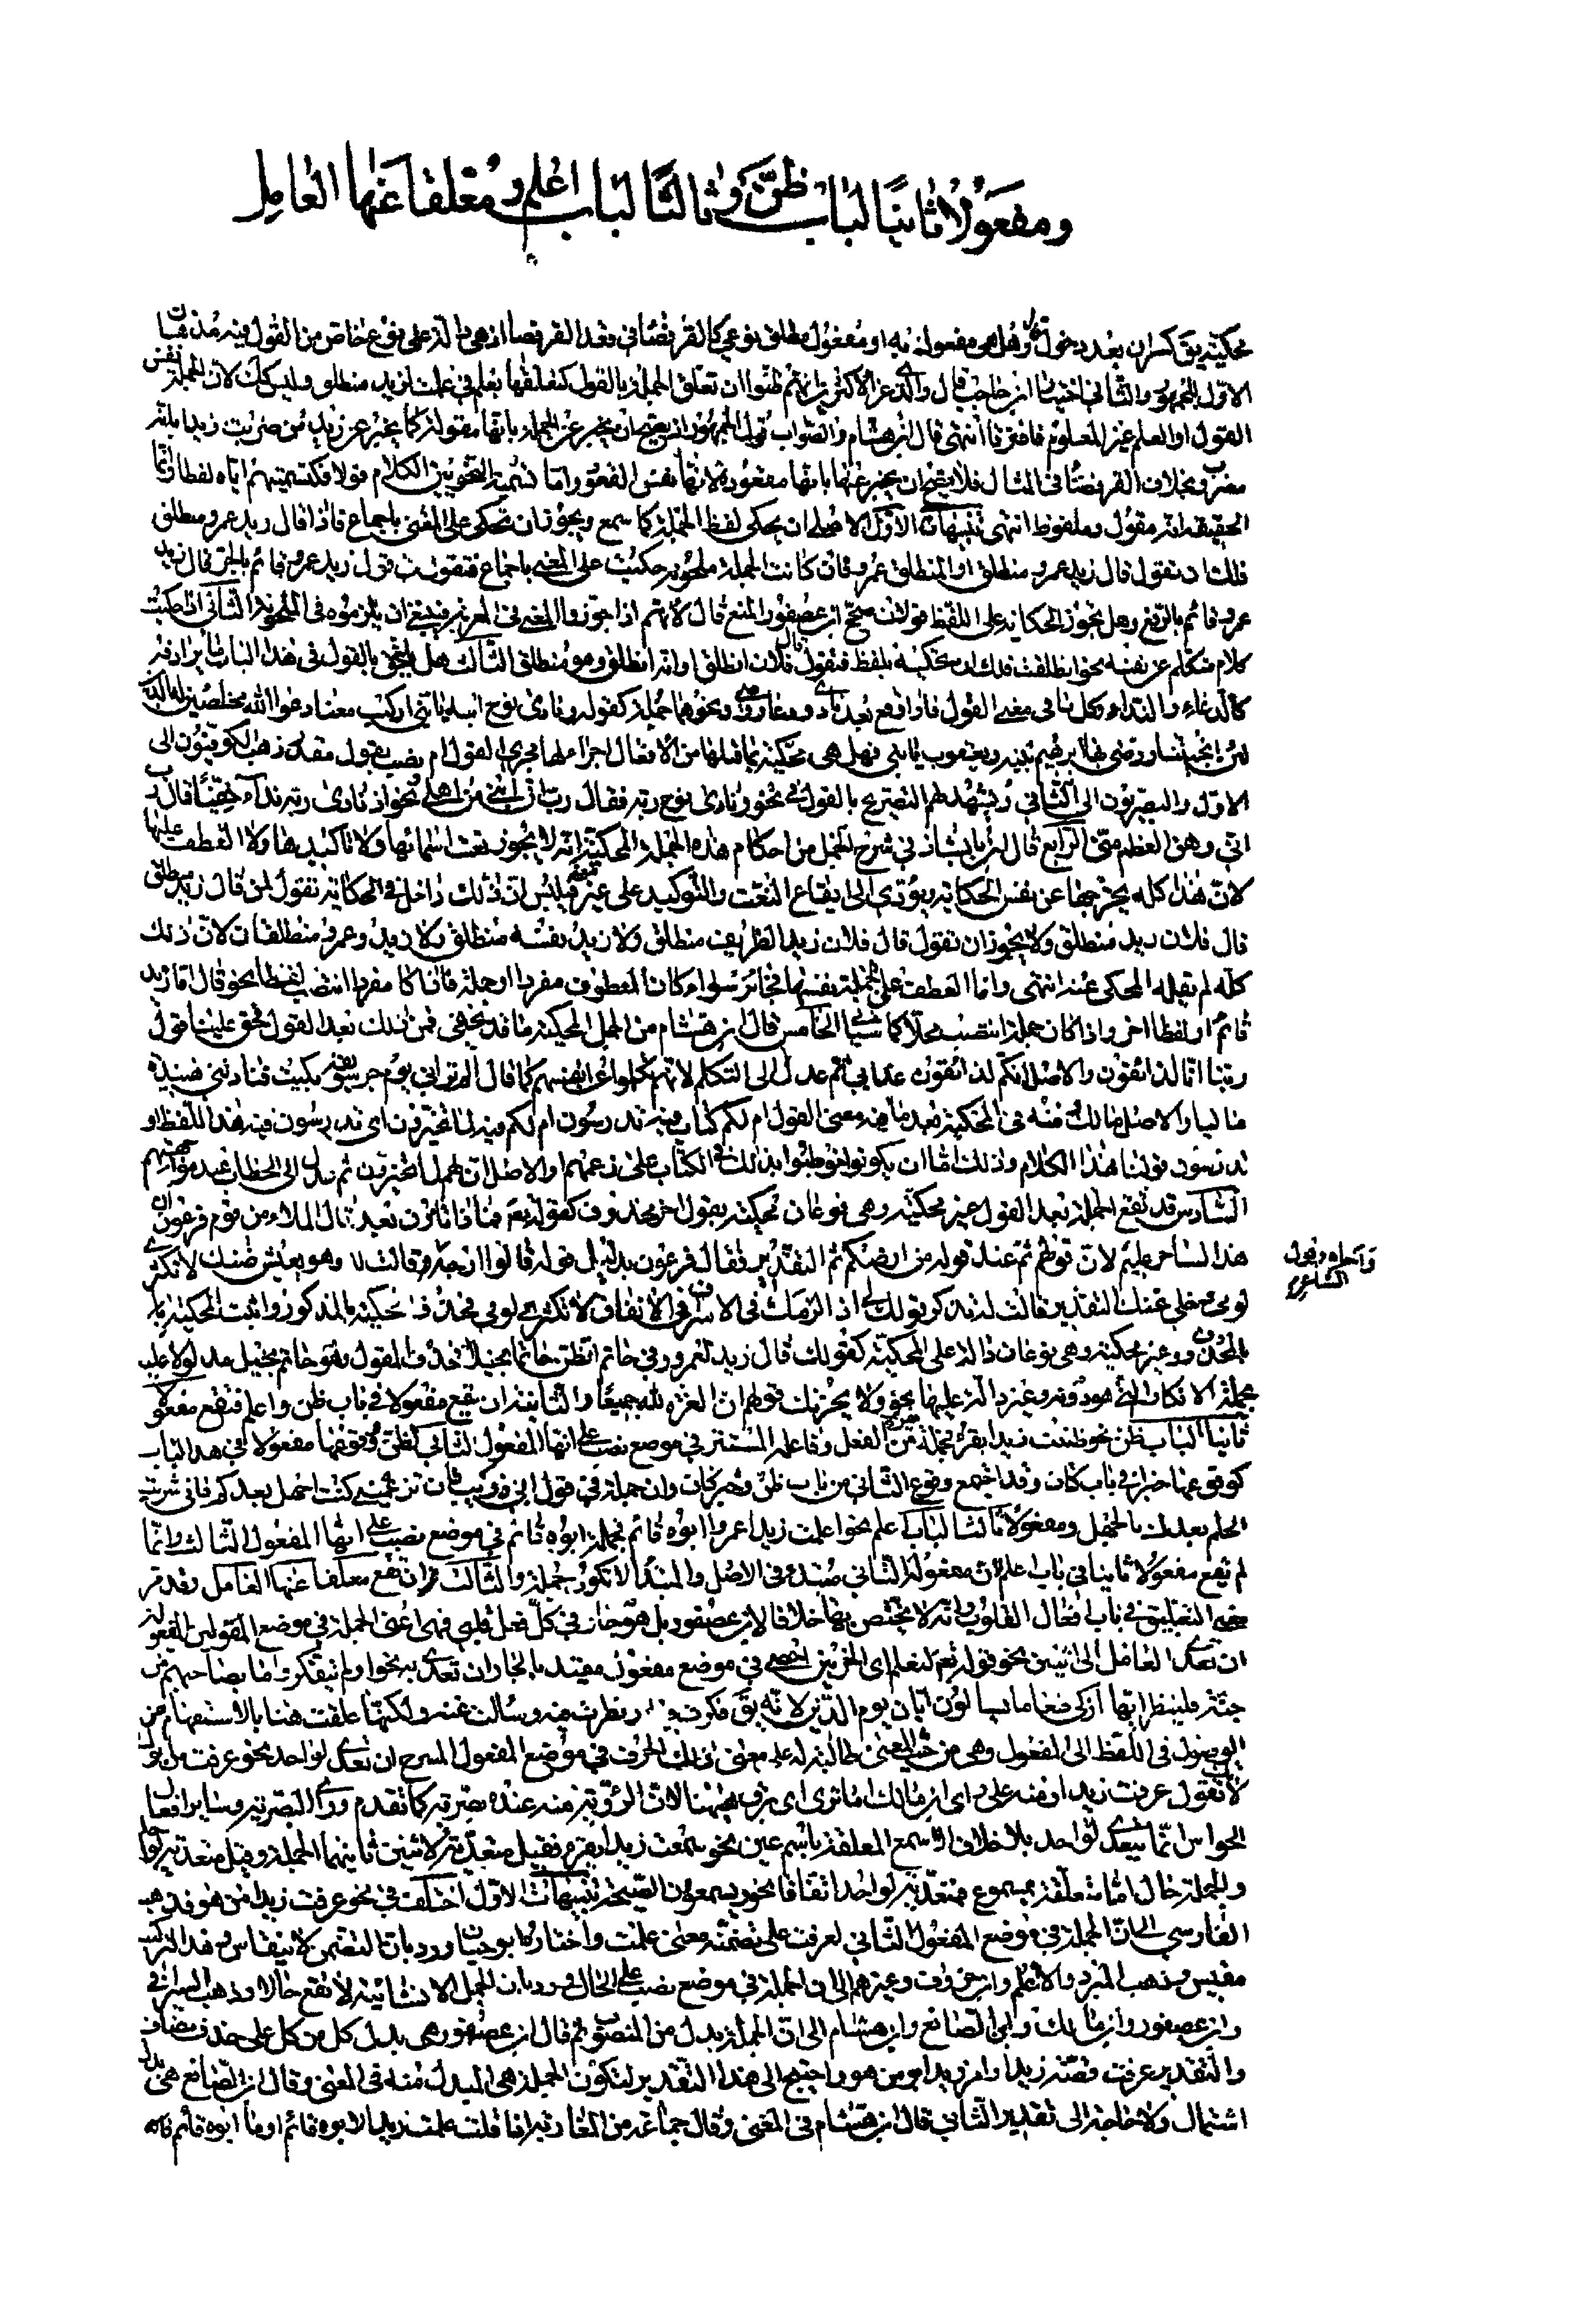 ومفعولا ثانيا لباب ظن وثالثا لباب اعلم ومعلقا عنها العامل
محكية بق كسران بعد دخول وهل هي مفعول به او مفعول مطلق نوعي كالقرفصا في قعد القرفصا اذ هي دالة على نوع خاص من القول فيه مذهبان
الاول للجمهور والثاني اختيار ابن حاجب قال والذي غر الاكثرين انهم ظنوا ان تعلق الجملة بالقول كتعلقها بعلم في علمت لزيد منطلق وليس كك لان الجملة نفس
القول والعلم غير المعلوم فافترقا انتهى قال ابن هشام والصواب قول الجمهور اذ يصح ان يخبر عن الجملة بانها مقولة كما يخبر عن زيد من ضربت زيدا بانه
مضروب بخلاف القرفصا في المثال فلا يصح ان يخبر عنها بانها مقعودة لانها نفس القعود واما تسمية النحويين الكلام قولا فكتسميتهم اياه لفظا وانما
الحقيقة انه مقول وملفوظ انتهى تنبيهات الاول الاصل ان يحكى لفظ الجملة كما سمع ويجوز ان تحكى على المعنى باجماع فاذا قال زيد عمرو منطلق
فلك ان تقول قال زيد عمرو منطلق او المنطلق عمرو فان كانت الجملة ملحونة حكيت على المعنى باجماع فتقول في قول زيد عمرو قائم بالجر قال زيد
عمرو قائم بالرفع وهل يجوز الحكاية على اللفظ قولان صحح ابن عصفور المنع قال لانهم اذا جوزوا المعنى في المعربة فينبغي ان يلزموه في الملحونة الثاني اذا حكيت
كلام متكلم عن نفسه نحو انطلقت فلك ان تحكيه بلفظه فتقول قال فلان انطلقت او انه انطلق وهو منطلق الثالث هل يلحق بالقول في هذا الباب ما يرادفه
كالدعاء والنداء وكل ما في معنى القول فاذا وقع بعد نادى ودعا ووصى ونحوها جملة كقوله ونادى نوح ابنه يا بني اركب معنا دعوا الله مخلصين له الدين
لئن انجيتنا ووصى بها ابرهيم بنيه ويعقوب يا بني فهل هي محكية بما قبلها من الافعال اجراء لها مجرى القول ام نصب بقول مقدر ذهب الكوفيون الى
الاول والبصريون الى الثاني ويشهد لهم التصريح بالقول في نحو ونادى نوح ربه فقال رب ان ابني من اهلي ونحو اذ نادى ربه نداء خفيا قال رب
اني وهن العظم مني الرابع قال ابن بابشاذ في شرح الجمل من احكام هذه الجملة المحكية انه لا يجوز نعت اسمائها ولا تاكيدها ولا العطف عليها
لان هذا كله يخرجها عن نفس الحكاية ويؤدي الى ايقاع النعت والتوكيد على غير فيلبس ان ذلك داخل في الحكاية تقول لمن قال زيد منطلق
قال فلان زيد منطلق ولا يجوز ان تقول قال فلان زيد الظريف منطلق ولا زيد نفسه منطلق ولا زيد وعمرو منطلقان لان ذلك
كله لم يقله المحكي عنه انتهى واما العطف على الجملة نفسها فجائز سواء كان المعطوف مفردا او جملة فاذا كان مفردا انتصب لفظا نحو قال اما زيد
قائم او لفظا اخر واذا كان جملة انتصب محلا كما سيأتي الخامس قال ابن هشام من الجمل المحكية ما قد يخفى فمن ذلك بعد القول فحق علينا قول
ربنا انا لذائقون والاصل انكم لذائقون عذابي ثم عدل الى التكلم لانهم تكلموا عن انفسهم كما قال الم تراني يوم جو سويقة بكيت فنادتني هنيدة
ماليا والاصل مالك ومنه في المحكية بعد ما فيه معنى القول ام لكم كتاب فيه تدرسون ان لكم فيه لما تخيرون اي تدرسون فيه هذا اللفظ او
تدرسون قولنا هذا الكلام وذلك اما ان يكونوا خوطبوا بذلك في الكتاب على زعمهم او الاصل ان لهم لما يتخيرون ثم عدل الى الخطاب عند مواجهتهم
السادس قد تقع الجملة بعد القول غير محكية وهي نوعان محكية بقول اخر محذوف كقوله تعالى فماذا تأمرون بعد قال الملاء من قوم فرعون ان
هذا لساحر عليم لان قولهم تم عند قوله من ارضكم ثم التقدير فقال فرعون بدليل قوله قالوا ارجه وقالت له وهو بعيش ضنك لا تكثري
واحاه وقول
الشاعر
لومي وخلي عنك التقدير قالت له اتذكر قولك لي اذ الومك في الاسراف في الانفاق لا تكثري لومي فحذف المحكية بالمذكور واثبت المحكية
بالمحذوف وغير محكية وهي نوعان دالة على المحكية كقولك قال زيد لعمرو في حاتم اتظن حاتما بخيلا فحذف المقول وهو حاتم بخيل مدلولا عليه
بجملة الانكار التي هو دونه وغير دالة عليها نحو ولا يحزنك قولهم ان العزة لله جميعا والثانية ان تقع مفعولا في باب ظن واعلم فتقع مفعولا
ثانيا لباب ظن نحو ظننت زيدا يقرء فجملة يقرء من الفعل وفاعله المستتر في موضع نصب على انها المفعول الثاني لظن ووقوعها مفعولا في هذا الباب
كوقوعها خبرا في باب كان وقد اجتمع وقوع الثاني من باب ظن وخبر كان وان جملة في قول ابي ذويب فان تزعميني كنت اجهل بعدكم فاني شريت
الحلم بعدك بالجهل ومفعولا ثالثا لباب اعلم نحو اعلمت زيدا عمروا ابوه قائم فجملة ابوه قائم في موضع نصب على انها المفعول الثالث وانما
لم تقع مفعولا ثانيا في باب اعلم لان مفعوله الثاني مبتدء في الاصل والمبتدا لا تكون جملة والثالث ان تقع معلقا عنها العامل وقد مر
معنى التعليق في باب افعال القلوب وانه لا يختص بها خلافا لابن عصفور بل هو جاز في كل فعل قلبي فهي اعني الجملة في موضع المفعولين المفعولة
ان تعدى العامل الى اثنين نحو قوله تعالى لنعلم اي الحزبين احصى في موضع مفعول مقيد بالجار ان تعدى به نحو اولم يتفكروا ما بصاحبهم من
جنة فلينظر ايها ازكى طعاما يسألون ايان يوم الدين لانه يق فكرت فيه ونظرت فيه وسألت عنه ولكنها علقت هنا بالاستفهام عن
الوصول في اللفظ الى المفعول وهي من حيث المعنى طالبة له على معنى ذلك الحرف في موضع المفعول المسرح ان تعدى لواحد نحو عرفت من ابوك
لانك تقول عرفت زيدا ومنه على رأي ابن مالك اما ترى اي برق ههنا لان الرؤية منه عنده بصرية كما تقدم ورأى البصرية وساير افعال
الحواس انما يتعدى لواحد بلا خلاف الا سمع المعلقة باسم عين نحو سمعت زيدا يقرء فقيل متعدية لاثنين ثانيهما الجملة وقيل متعدية لواحد
والجملة حال اما معلقة بمسموع فمتعدية لواحد اتفاقا نحو يسمعون الصيحة تنبيهات الاول اختلف في نحو عرفت زيدا من هو فذهب
الفارسي الى ان الجملة في موضع المفعول الثاني لعرفت على تضمنه معنى علمت واختاره ابو حيان ورد بان التضمن لا ينقاس وهذا التركيب
مقيس وذهب المبرد والاعلم وابن خروف وغيرهم الى ان الجملة في موضع نصب على الحال ورد بان الجمل الانشائية لا تقع حالا وذهب السيرافي
وابن عصفور وابن مالك وابن الصائغ وابن هشام الى ان الجملة بدل من المنصوب ثم قال ابن عصفور هي بدل كل من كل على حذف مضاف
والتقدير عرفت قصة زيد او امر زيد ابو من هو واحتيج الى هذا التقدير لتكون الجملة هي المبدل منه في المعنى وقال ابن الصائغ هي بدل
اشتمال ولا حاجة الى تقدير الثاني قال ابن هشام في المغني وقال جماعة من المغاربة اذا قلت علمت زيدا لابوه قائم او ما ابوه قائم فالعامل